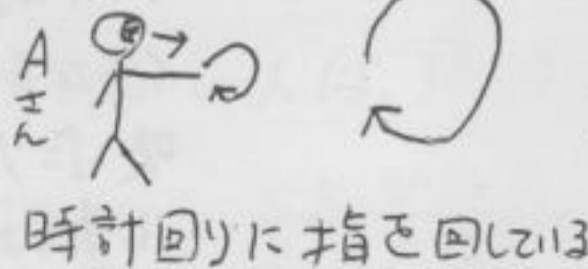 Aさん
時計回りに指を回している